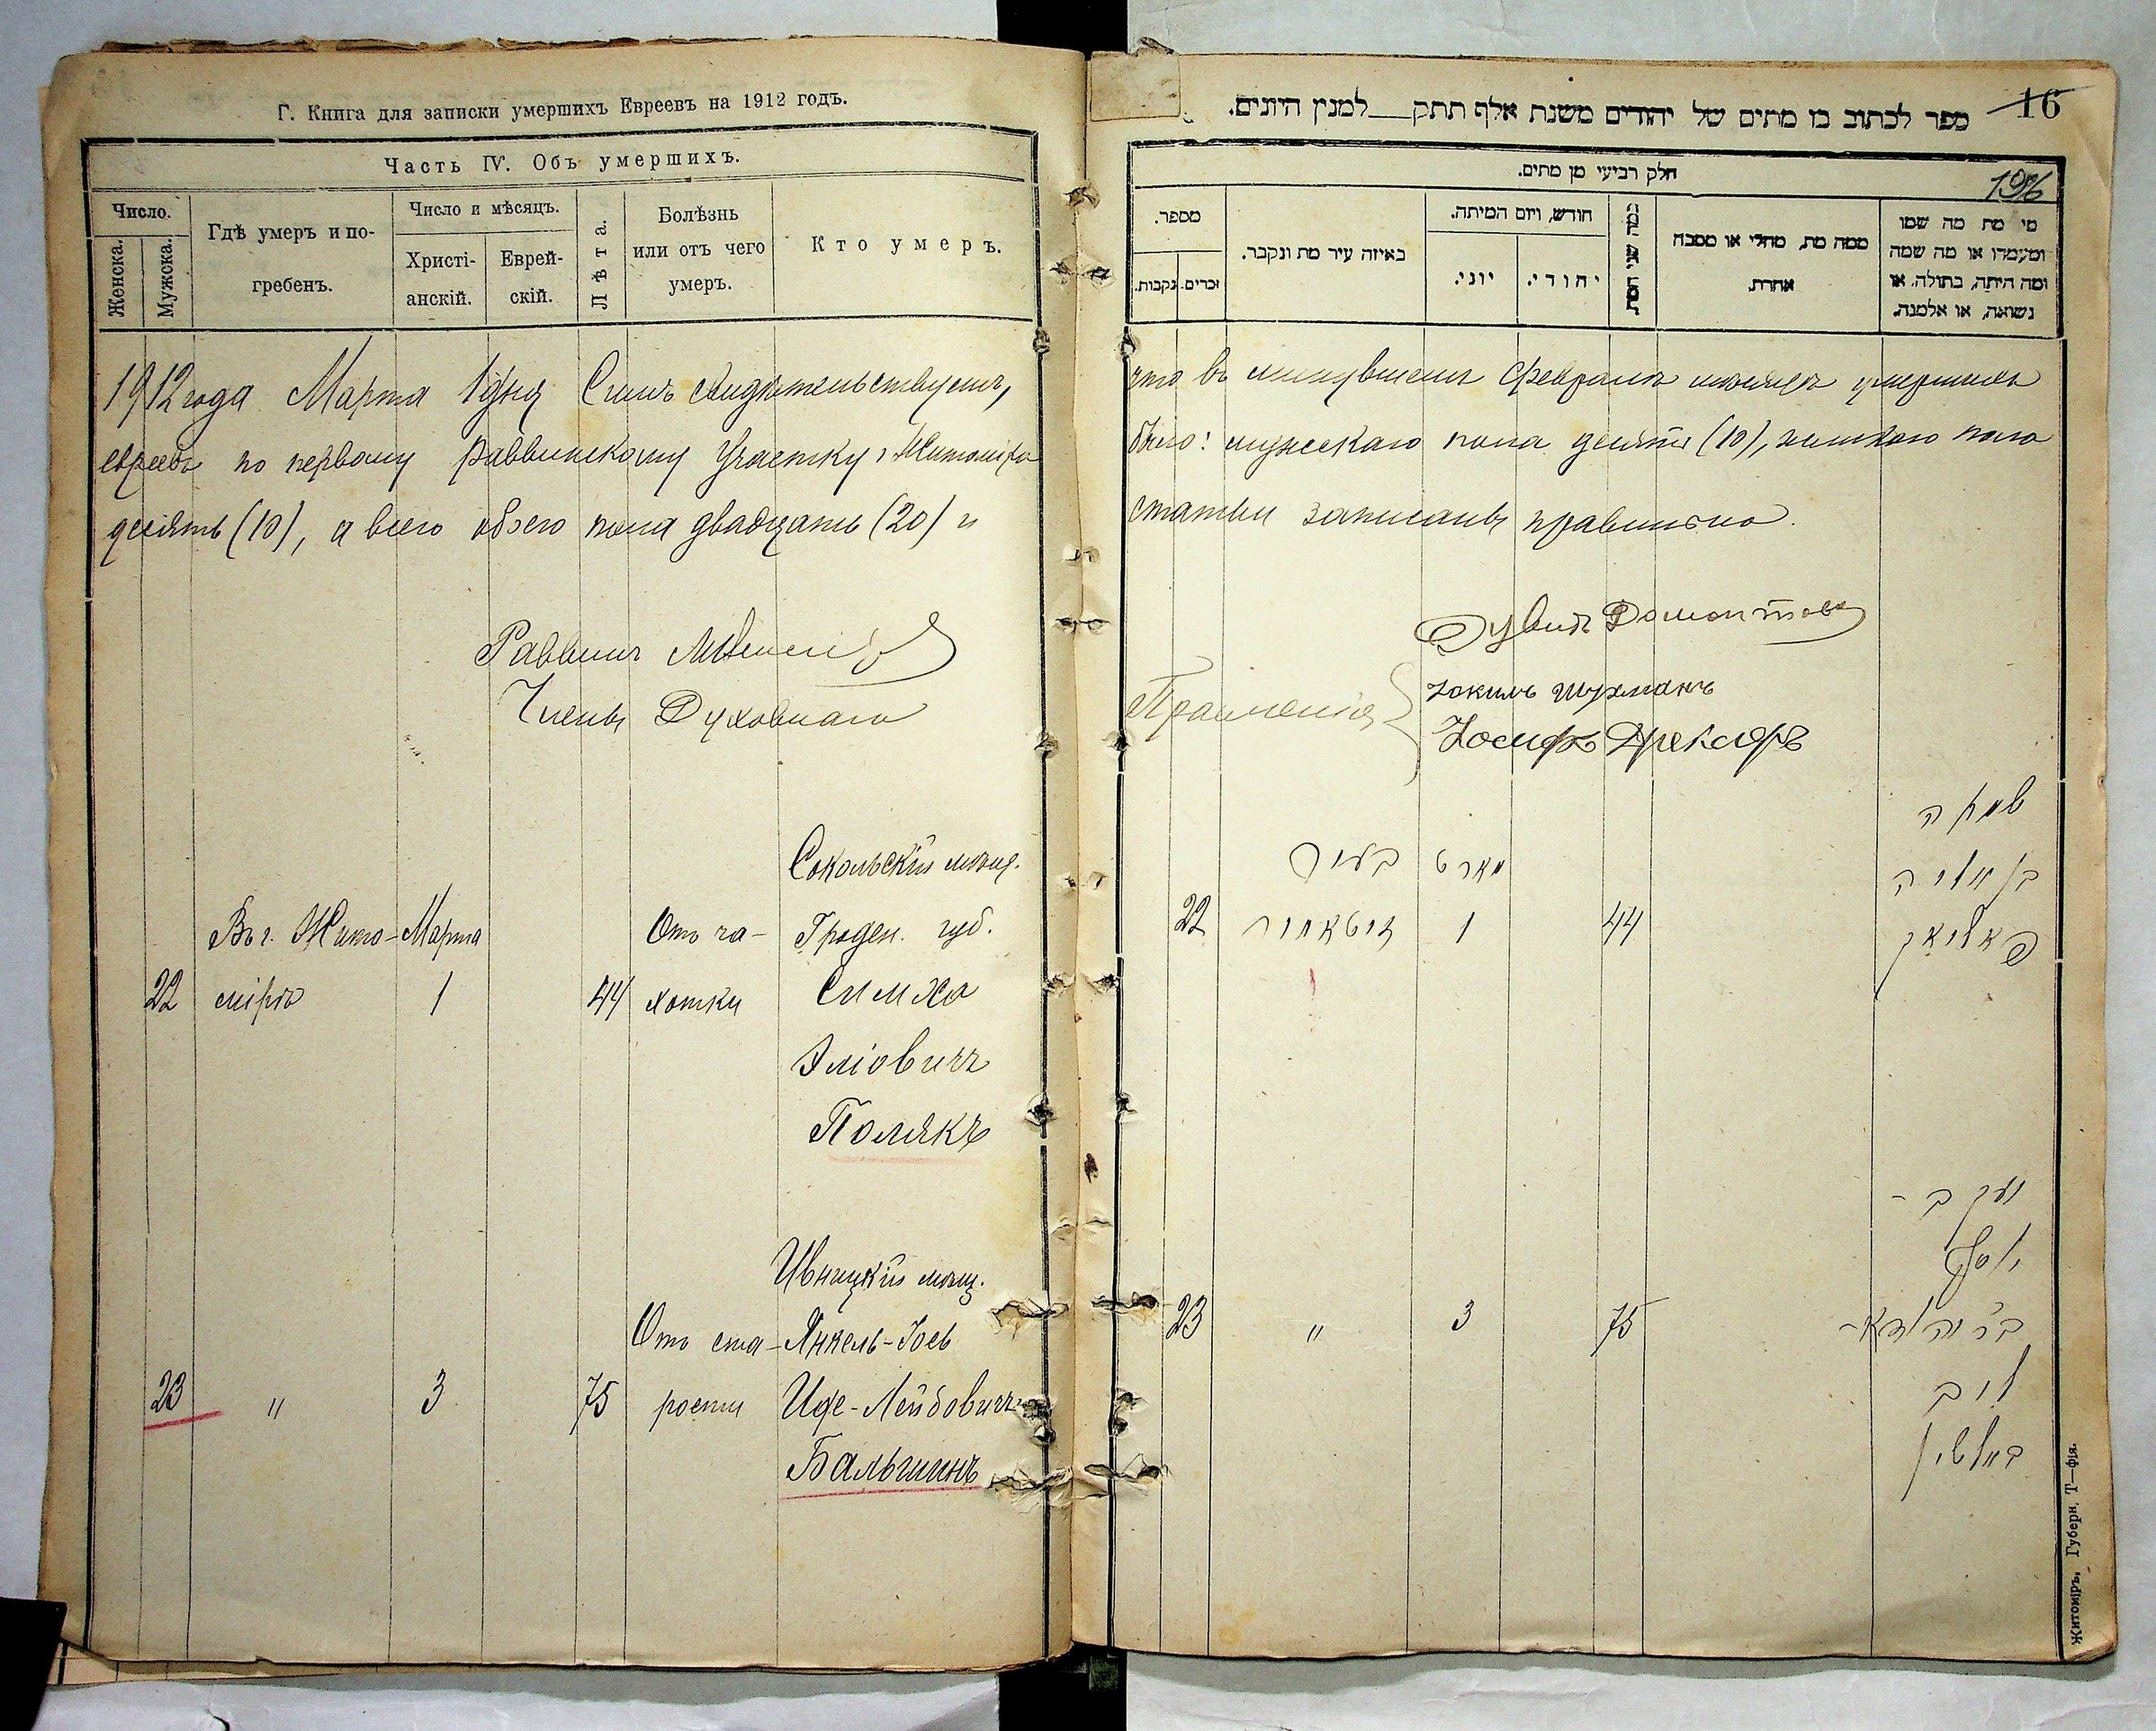 Г. Книга для записки умершихъ Евреевъ на 1912 годъ.
Часть IV. Объ умершихъ.
Число.
Женска.
Мужска.
Гдѣ умеръ и по-
гребенъ.
Число и мѣсяцъ.
Христі-
анскій.
Еврей-
скій.
Лѣта.
Болѣзнь
или отъ чего
умеръ.
Кто умеръ.
1912 года Марта 1 дня Симъ свидѣтельствуемъ,
евреевъ по первому раввинскому участку г. Житоміра
десять (10), а всего обоего пола двадцать (20) и
Раввинъ
Члены Духовнаго
Сокольскій мѣщ.
Въ г. Жито- Марта Отъ ча- Гроден. губ.
22 мірѣ 1 44 хотки Симха
Эліовичъ
Полякъ
Ивницкій мѣщ.
Отъ ста- Янкель-Іось
23 " 3 75 рости Иде-Лейбовичъ
Бальшинъ
ספר לכתוב בו מתים של יהודים משנת אלף תתק למנין היונים.
16
חלק רביעי מן מתים.
196
מספר.
זכרים.
נקבות.
באיזה עיר מת ונקבר.
חודש, ויום המיתה.
יוני.
יהודי.
כמה שני המת.
ממה מת, מחלי או מסבה
אחרת.
מי מת מה שמו
ומעמדו או מה שמה
ומה היתה, בתולה, או
נשואה, או אלמנה.
что въ минувшемъ Февралѣ мѣсяцѣ умершихъ
было: мужескаго пола десять (10), женскаго пола
статьи записаны правильно.
Правленія
Іосифъ Дрекслеръ
שמחה
בעיר מארט
בן אליה
22 זיטאמיר 1 44 פאליאק
יעקב -
יוסף
23 " 3 75 ב"ר יהודא-
ליב
באלשין
Житоміръ, Губерн. Т—фія.